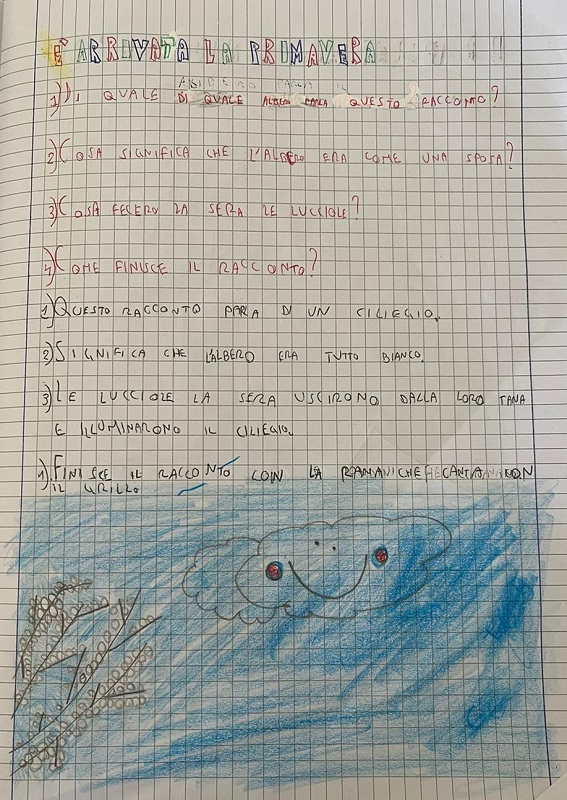 È ARRIVATA LA PRIMAVERA
1) DI QUALE ALBERO PARLA QUESTO RACCONTO?
2) COSA SIGNIFICA CHE L'ALBERO ERA COME UNA SPOSA?
3) COSA FECERO LA SERA LE LUCCIOLE?
4) COME FINISCE IL RACCONTO?
1) QUESTO RACCONTO PARLA DI UN CILIEGIO.
2) SIGNIFICA CHE L'ALBERO ERA TUTTO BIANCO.
3) LE LUCCIOLE LA SERA USCIRONO DALLA LORO TANA
E ILLUMINARONO IL CILIEGIO.
4) FINISCE IL RACCONTO CON LA CHE CANTA CON
IL GRILLO